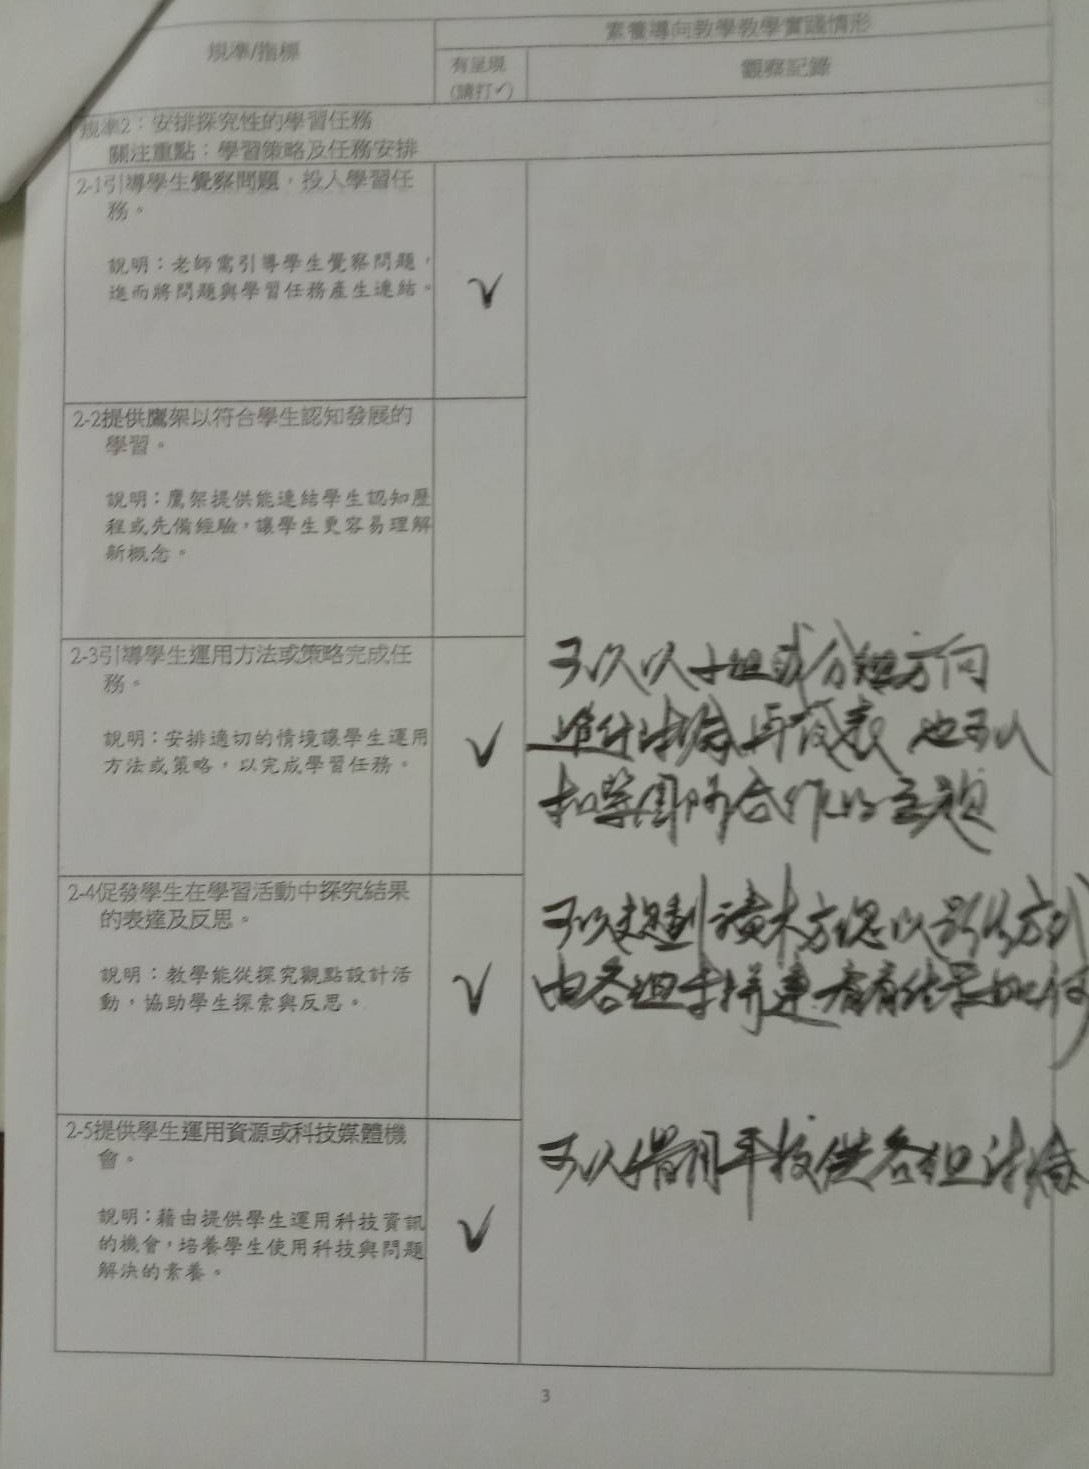 規準/指標
素養導向教學教學實踐情形
有呈現
(請打✓)
觀察記錄
規準2：安排探究性的學習任務
關注重點：學習策略及任務安排
2-1引導學生覺察問題，投入學習任
務。
說明：老師需引導學生覺察問題，
進而將問題與學習任務產生連結。
✓
2-2提供鷹架以符合學生認知發展的
學習。
說明：鷹架提供能連結學生認知歷
程或先備經驗，讓學生更容易理解
新概念。
2-3引導學生運用方法或策略完成任
務。
說明：安排適切的情境讓學生運用
方法或策略，以完成學習任務。
✓
可以以小組或分組方向
進行討論再發表 也可以
扣學 合作的主題
2-4促發學生在學習活動中探究結果
的表達及反思。
說明：教學能從探究觀點設計活
動，協助學生探索與反思。
✓
可以 積木方 以 方式
由各組手拼 看看結果如何
2-5提供學生運用資源或科技媒體機
會。
說明：藉由提供學生運用科技資訊
的機會，培養學生使用科技與問題
解決的素養。
✓
可以借用平板供各組討論
3